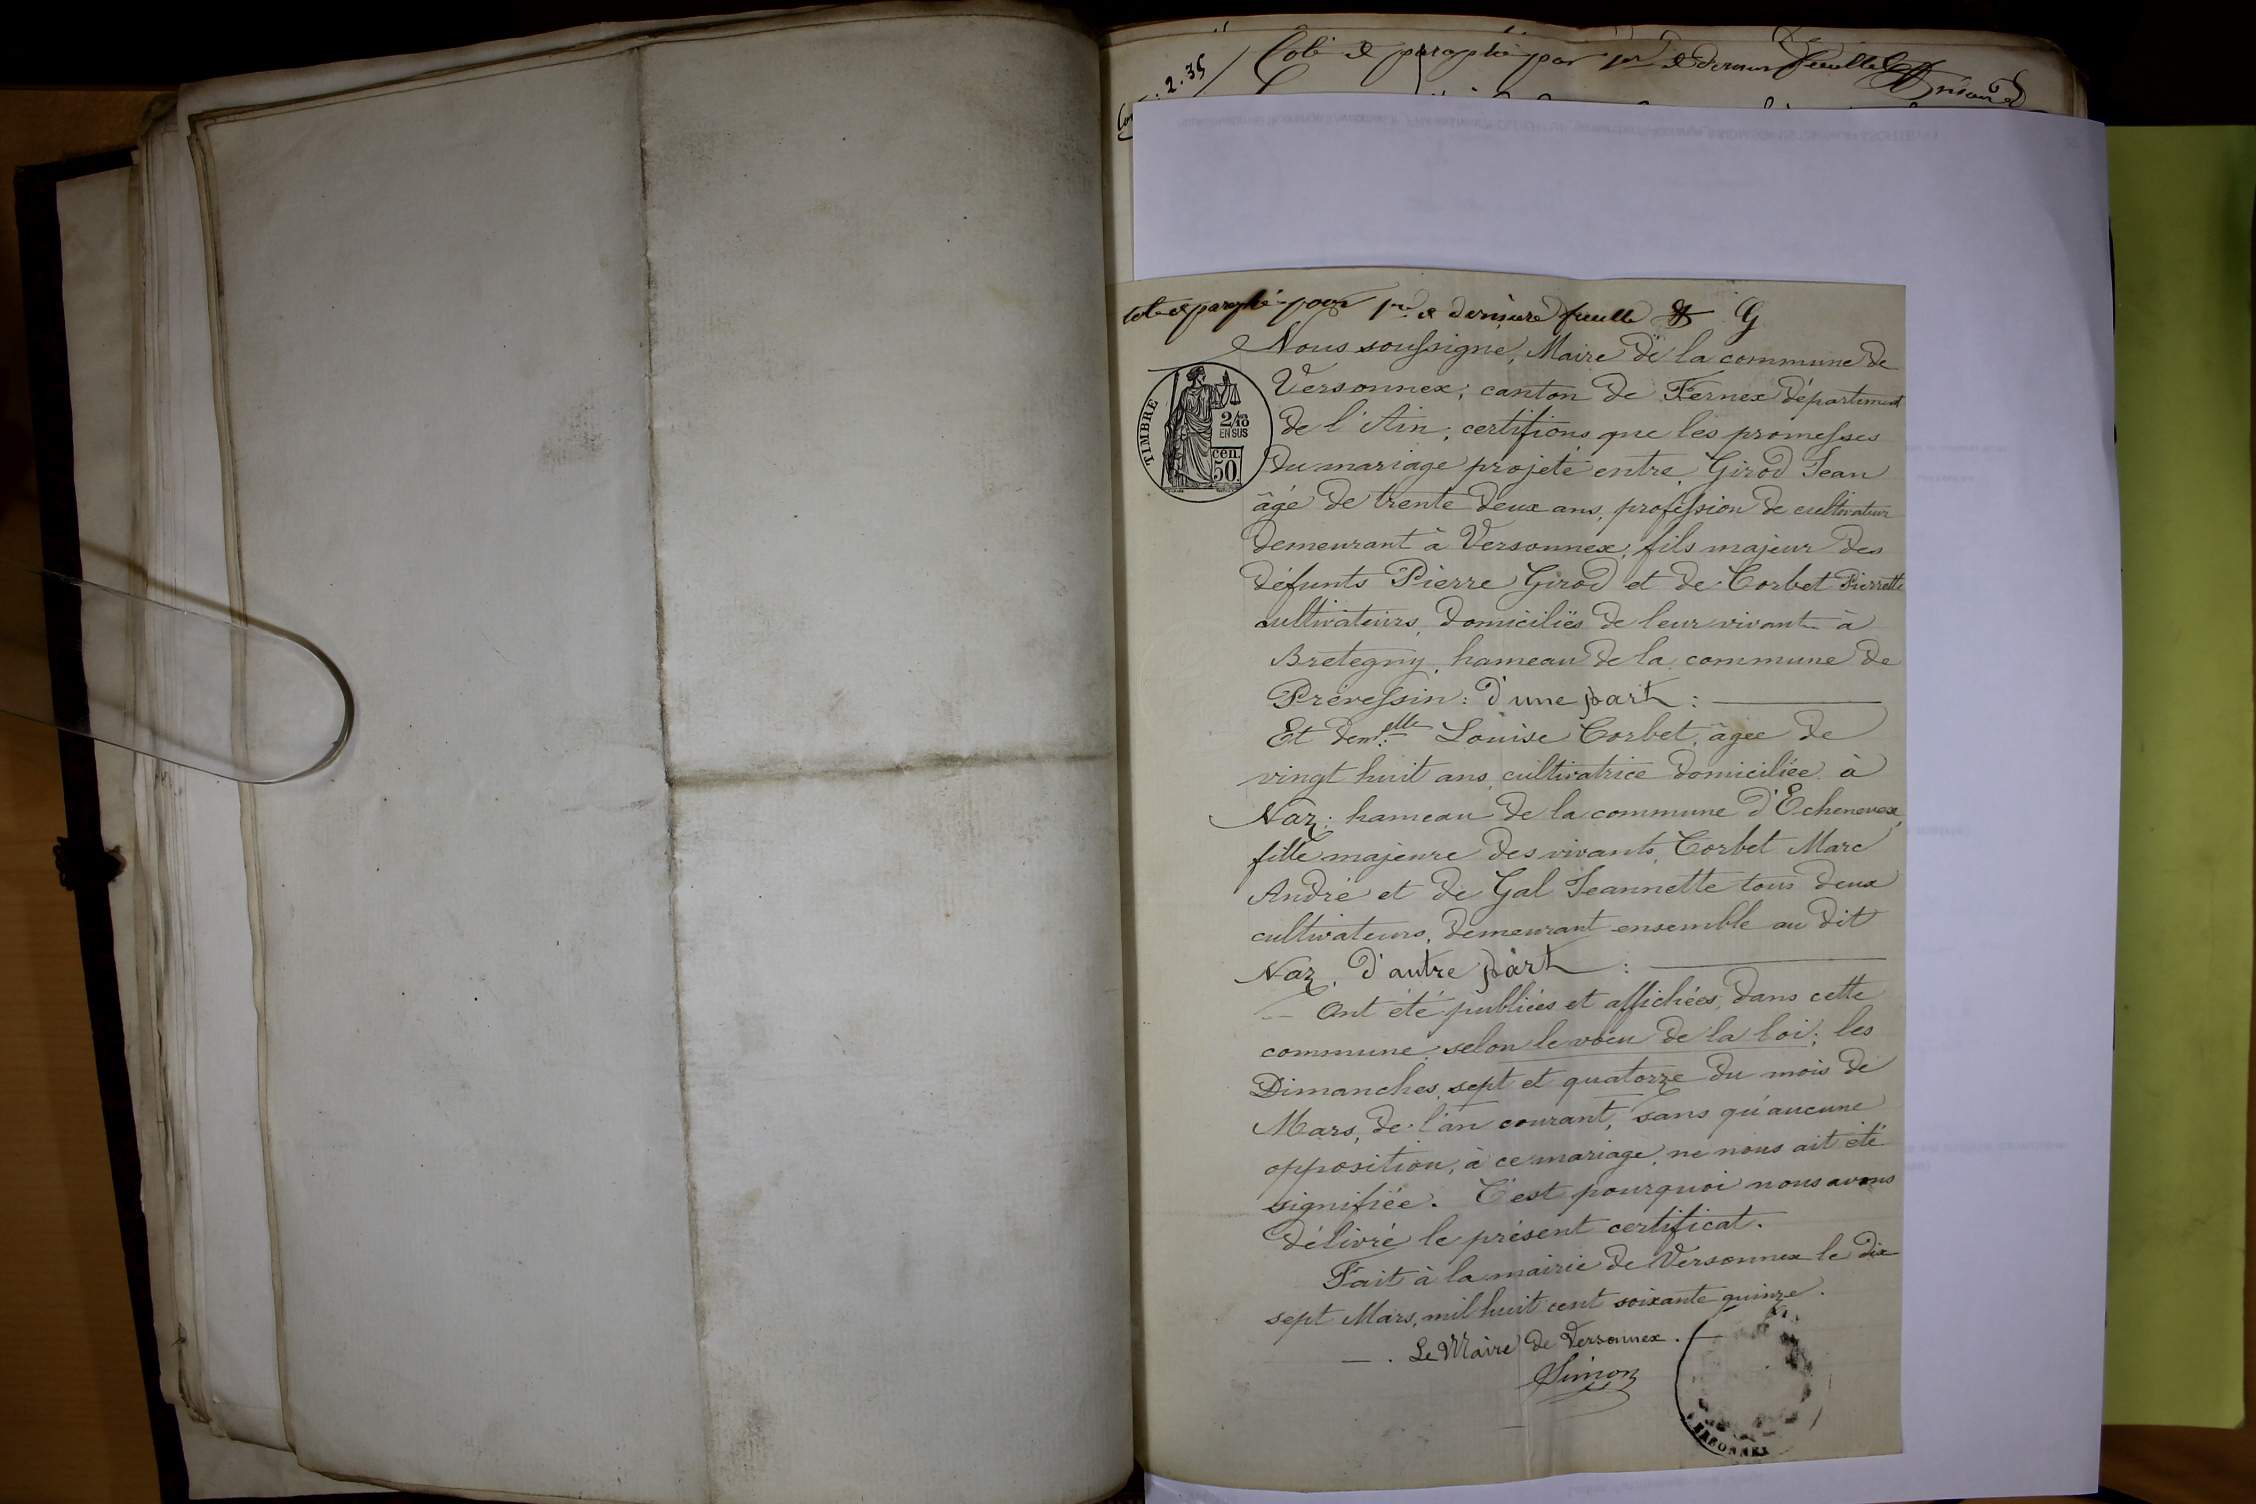 2.35
Coté & paraphé par 1er & dernier feuillet
coté & paraphé pour 1re & dernière feuille G
Nous soussigné, Maire de la commune de
Versonnex; canton de Fernex département
de l'Ain; certifions que les promesses
du mariage projeté entre, Girod Jean
âgé de trente deux ans, profession de cultivateur
demeurant à Versonnex, fils majeur des
défunts Pierre Girod et de Corbet Pierrette
cultivateurs, domiciliés de leur vivant à
Bretegny, hameau de la commune de
Prévessin: d'une part:
Et demelle Louise Corbet, âgée de
vingt huit ans, cultivatrice domiciliée à
Naz; hameau de la commune d'Echenevex,
fille majeure des vivants, Corbet Marc
André et de Gal Jeannette tous deux
cultivateurs, demeurant ensemble au dit
Naz, d'autre part:
— Ont été publiées et affichées, dans cette
commune, selon le vœu de la loi; les
Dimanches, sept et quatorze du mois de
Mars, de l'an courant, sans qu'aucune
opposition, à ce mariage, ne nous ait été
signifiée. C'est pourquoi nous avons
délivré le présent certificat.
Fait à la mairie de Versonnex le dix
sept Mars, mil huit cent soixante quinze.
—. Le Maire de Versonnex. —
Simon
TIMBRE
2/10
EN SUS
cen.
50
VERSONNEX